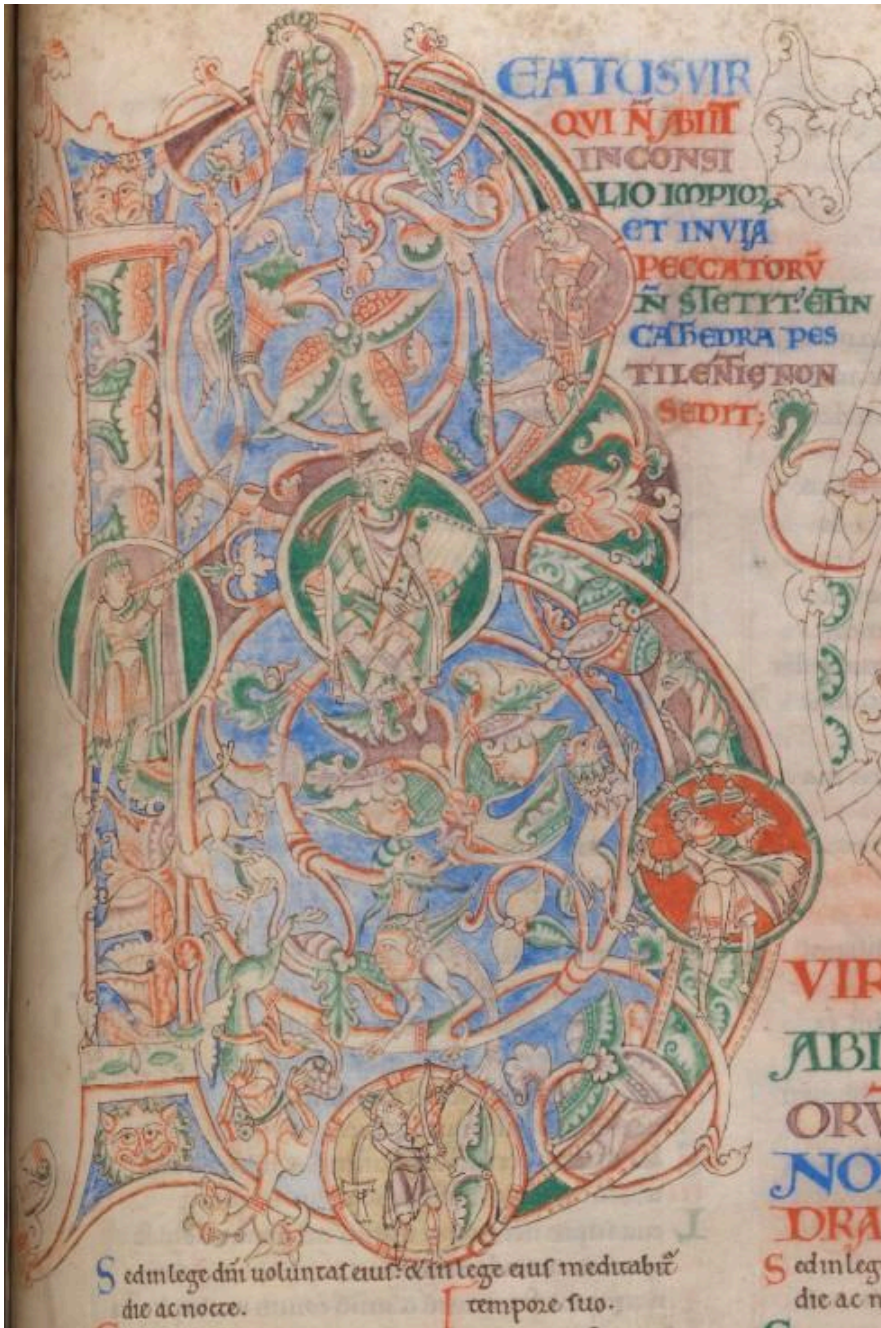 BEATUS VIR
QVI Ñ ABIIT
IN CONSI
LIO IMPIOꝜ
ET IN VIA
PECCATORṼ
Ñ STETIT: ET IN
CATHEDRA PES
TILENTIĘ NON
SEDIT;
Sed in lege dñi uoluntas eius: & in lege eius meditabit᷑
die ac nocte.
tempore suo.
VIR
ABI
ORV̄
NO
DRA
Sed in leg
die ac n